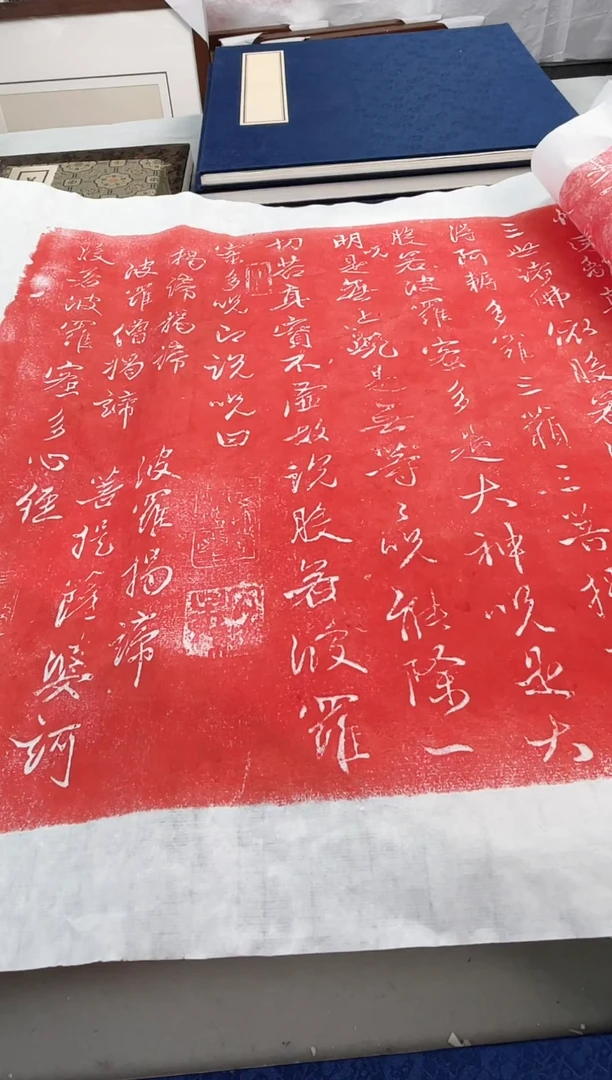 三世諸佛依般若
得阿耨多羅三藐三菩提
般若波羅蜜多是大神呪是大
明呪是無上呪是無等々呪能除一
切苦真實不虛故說般若波羅
蜜多呪即說呪曰
揭諦揭諦 波羅揭諦
波羅僧揭諦 菩提薩婆訶
般若波羅蜜多心經